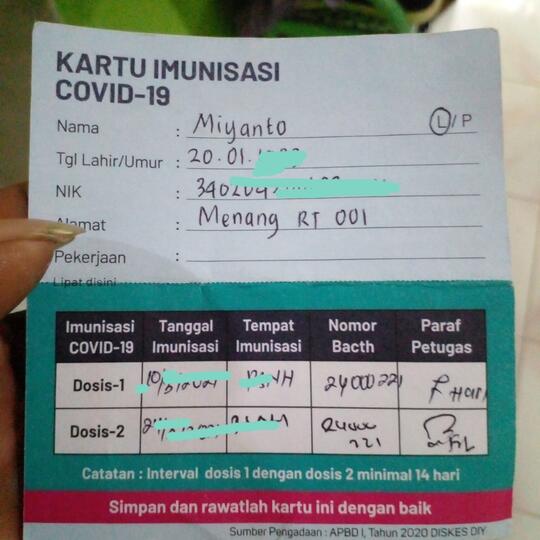 KARTU IMUNISASI
COVID-19
Nama : Miyanto L/P
Tgl Lahir/Umur : 20.01.
NIK : 340204
Alamat : Menang RT 001
Pekerjaan :
Lipat disini
Imunisasi COVID-19 Tanggal Imunisasi Tempat Imunisasi Nomor Bacth Paraf Petugas
Dosis-1 24000221
Dosis-2 221
Catatan : Interval dosis 1 dengan dosis 2 minimal 14 hari
Simpan dan rawatlah kartu ini dengan baik
Sumber Pengadaan : APBD I, Tahun 2020 DISKES DIY